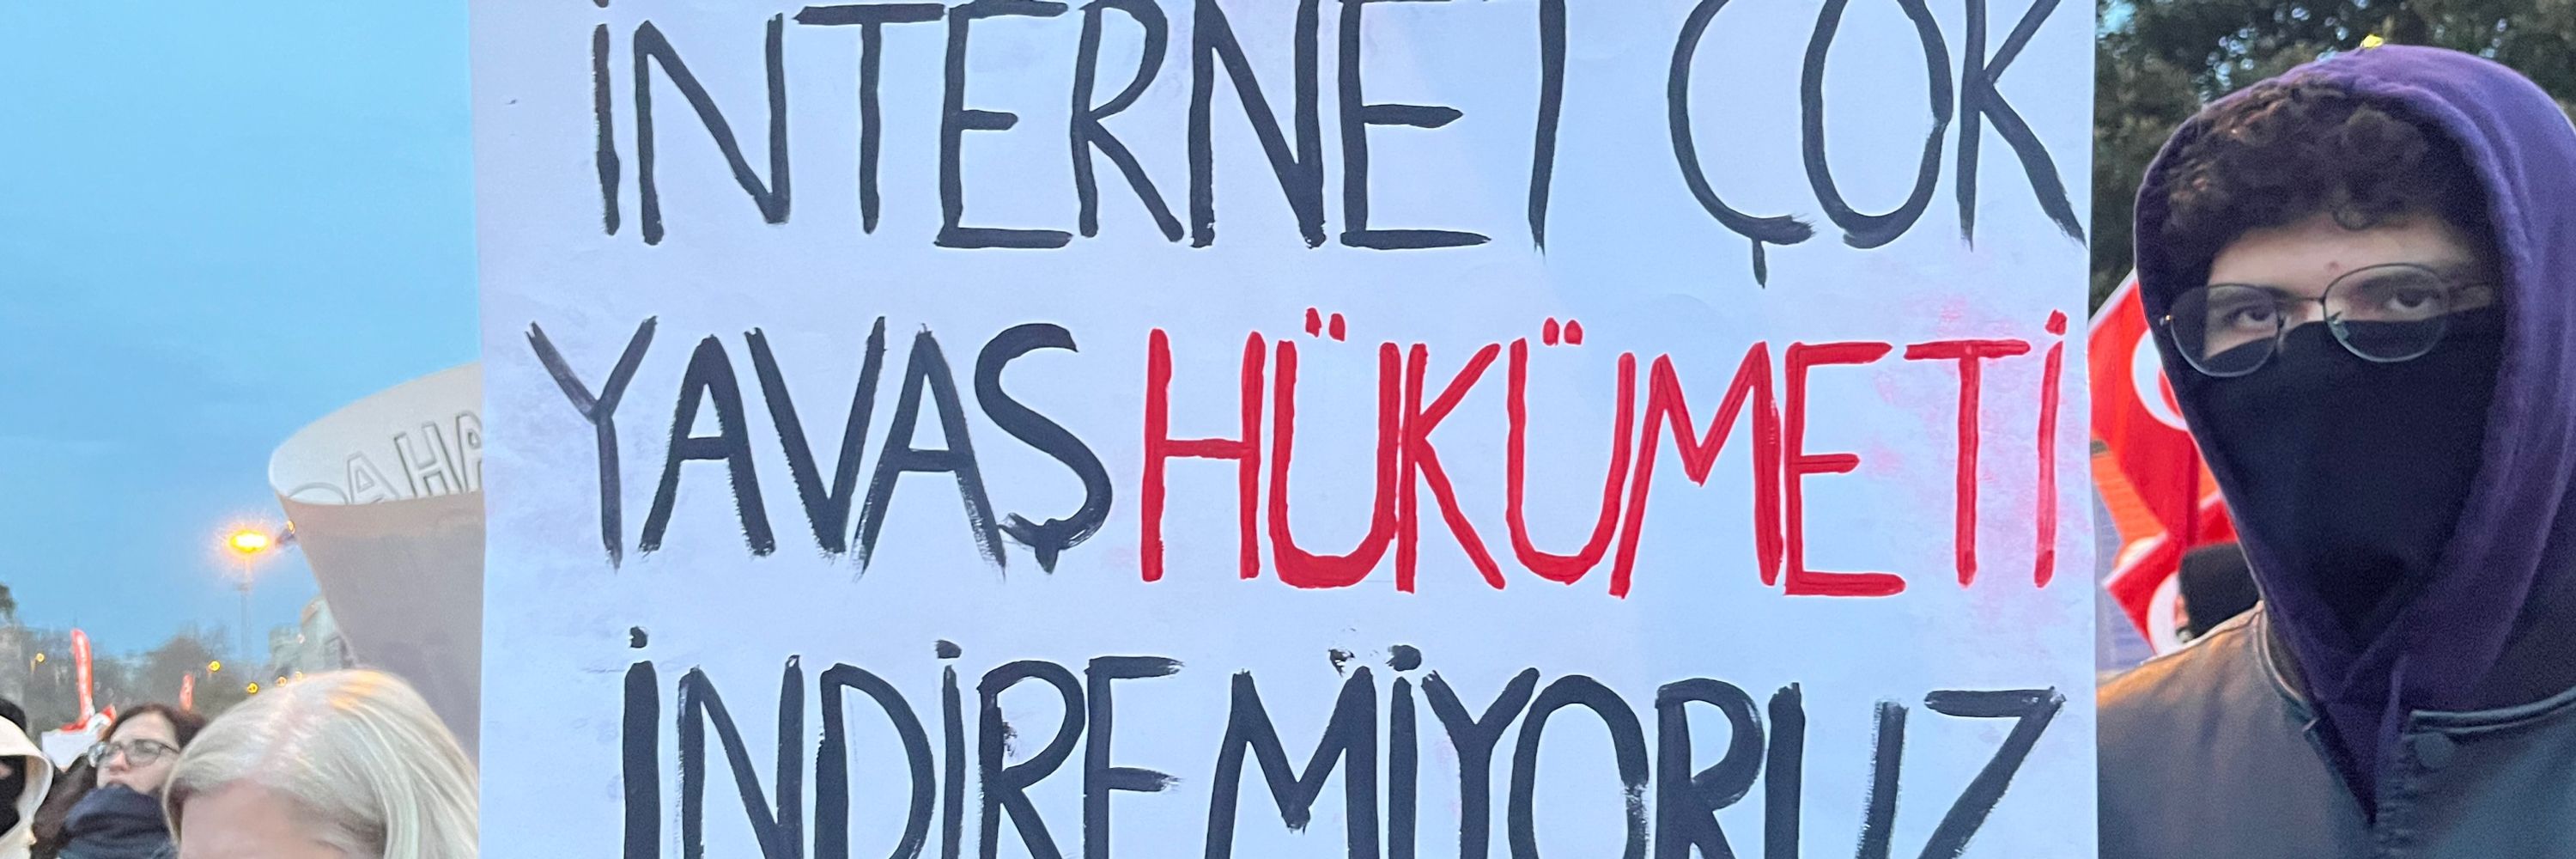 İNTERNET ÇOK
YAVAŞ HÜKÜMETİ
İNDİREMİYORUZ